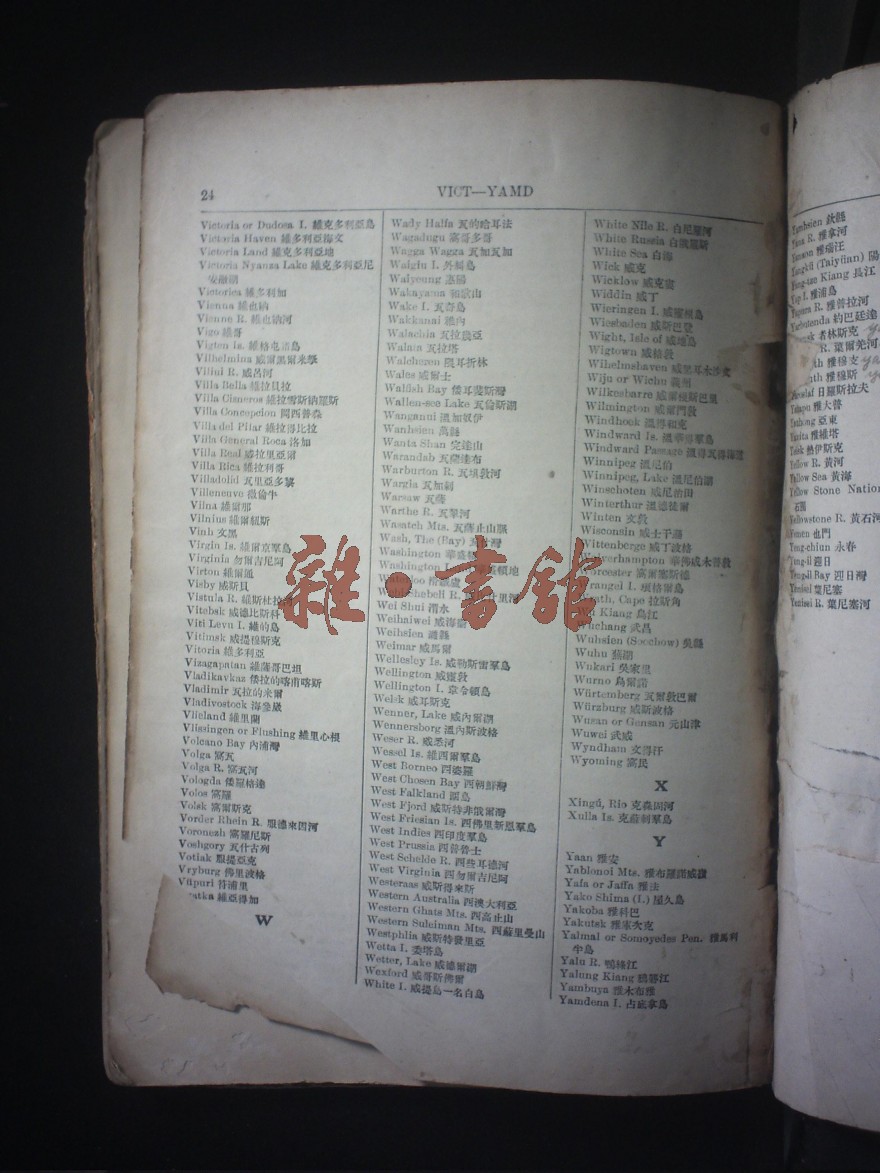 24
VICT—YAMD
Victoria or Dudosa I. 維克多利亞島
Victoria Haven 維多利亞海文
Victoria Land 維克多利亞地
Victoria Nyansa Lake 維克多利亞尼
Victorica 維多利加
Vienna 維也納
Vienne R. 維也納河
Vigo 維哥
Vigten Is.
Vilhelmina 威爾黑爾米拿
Vilini R. 威呂河
Villa Bella 維拉貝拉
Villa Cisneros 維拉雪斯納羅斯
Villa Concepcion
Villa del Pilar 維拉得比拉
Villa General Roca 洛加
Villa Real 威拉里亞爾
Villa Rica 維拉利哥
Villadolid 瓦里亞多黎
Villeneuve
Vilna 維爾那
Vilnius 維爾紐斯
Vinh 文黑
Virgin Is. 維爾京羣島
Virginia 勿爾吉尼阿
Virton 維爾通
Visby 威斯貝
Vistula R. 維斯杜拉
Vitebsk 威德比斯科
Viti Levu I. 維的島
Vitimsk 威提穆斯克
Vitoria 維多利亞
Vizagapatan 維薩哥巴坦
Vladikavkaz 倭拉的喀甫喀斯
Vladimir 瓦拉的米爾
Vladivostock 海參崴
Vlieland 維里蘭
Vlissingen or Flushing 維里心根
Volcano Bay 內浦灣
Volga 窩瓦
Volga R. 窩瓦河
Vologda 倭羅格達
Volos 窩羅
Volsk 窩爾斯克
Vorder Rhein R. 服德來因河
Voronezh 窩羅尼斯
Voshgory 瓦什古列
Votiak 服提亞克
Vryburg 佛里波格
Vüpuri 苻浦里
維亞得加
W
Wady Halfa 瓦的哈耳法
Wagadugu 窩哥多哥
Wagga Wagga 瓦加瓦加
Waigiu I.
Waiyeung 惠陽
Wakayama 和歌山
Wake I. 瓦奇島
Wakkanai 稚內
Walachia 瓦拉幾亞
Walata 瓦拉塔
Walcheren
Wales 威爾士
Walfish Bay 倭耳斐斯灣
Wallen-see Lake 瓦倫斯湖
Wanganui 溫加奴伊
Wanhsien 萬縣
Wanta Shan 完達山
Warandab 瓦蘭達布
Warburton R. 瓦填敦河
Wargla 瓦加剌
Warsaw 瓦薩
Warthe R.
Wasatch Mts. 瓦薩止山脈
Wash, The (Bay)
Washington 華盛頓
Washington
Wei Shui 渭水
Weihaiwei 威海衞
Weihsien 濰縣
Weimar 威馬爾
Wellesley Is. 威勒斯爾羣島
Wellington 威靈敦
Wellington I. 韋令頓島
Welsk 威耳斯克
Wenner, Lake 威內爾湖
Wennersborg 溫內斯波格
Weser R. 威悉河
Wessel Is. 維西爾羣島
West Borneo 西婆羅
West Chosen Bay 西朝鮮灣
West Falkland
West Fjord 威斯特非俄爾灣
West Friesian Is. 西佛里斯恩羣島
West Indies 西印度羣島
West Prussia 西普魯士
West Schelde R. 西些耳德河
West Virginia 西勿爾吉尼阿
Westeraas 威斯得來斯
Western Australia 西澳大利亞
Western Ghats Mts. 西高止山
Western Suleiman Mts. 西蘇里曼山
Westphlia 威斯特發里亞
Wetta I. 委塔島
Wetter, Lake 威德爾湖
Wexford 威哥斯佛爾
White I. 威提島一名白島
White Nile R. 白尼羅河
White Russia 白俄羅斯
White Sea 白海
Wick 威克
Wicklow 威克婁
Widdin 威丁
Wieringen I. 威靈根島
Wiesbaden 威斯巴登
Wight, Isle of 威地島
Wigtown 威格敦
Wilhelmshaven
Wiju or Wichu 義州
Wilkesbarre 威爾穆斯巴里
Wilmington 威爾門敦
Windhoek 溫得和克
Windward Is. 溫華得羣島
Windward Passage
Winnipeg 溫尼伯
Winnipeg, Lake 溫尼伯湖
Winschoten 威尼的田
Winterthur 溫忒徒爾
Winten 文敦
Wisconsin 威士干湖
Wittenberge 威丁波格
Wolverhampton
Worcester 窩爾塞斯德
Wrangel I.
Wrath, Cape 拉斯角
Wu Kiang 烏江
Wuchang 武昌
Wuhsien (Soochow) 吳縣
Wuhu 蕪湖
Wukari 吳家里
Wurno 烏爾諾
Würtemberg 瓦爾敦巴爾
Würzburg 威斯波格
Wusan or Gensan 元山津
Wuwei 武威
Wyndham 文得汗
Wyoming 窩民
X
Xingú, Rio 克森固河
Xulla Is. 克蘇利羣島
Y
Yaan 雅安
Yablonoi Mts. 雅布羅諾威嶺
Yafa or Jaffa 雅法
Yako Shima (I.) 屋久島
Yakoba 雅科巴
Yakutsk 雅庫次克
Yalmal or Somoyedes Pen. 雅馬利
牛島
Yalu R. 鴨綠江
Yalung Kiang 鴉礱江
Yambuya 雅木布雅
Yamdena I. 占底拿島
Yamhsien 欽縣
Yana R. 雅拿河
(Taiyüan) 陽
Yang-tze Kiang 長江
Yap I. 雅浦島
Yapura R. 雅普拉河
Yarbutenda 約巴廷達
者林斯克
R. 葉爾羌河
雅穆支
雅穆斯
日羅斯拉夫
雅大普
亞東
雅維塔
熱伊斯克
Yellow R. 黃河
Yellow Sea 黃海
Yellow Stone Nation
石園
Yellowstone R. 黃石河
Yemen 也門
Yung-chiun 永春
迎日
Bay 迎日灣
Yenisei 葉尼塞
Yenisei R. 葉尼塞河
雜·書館